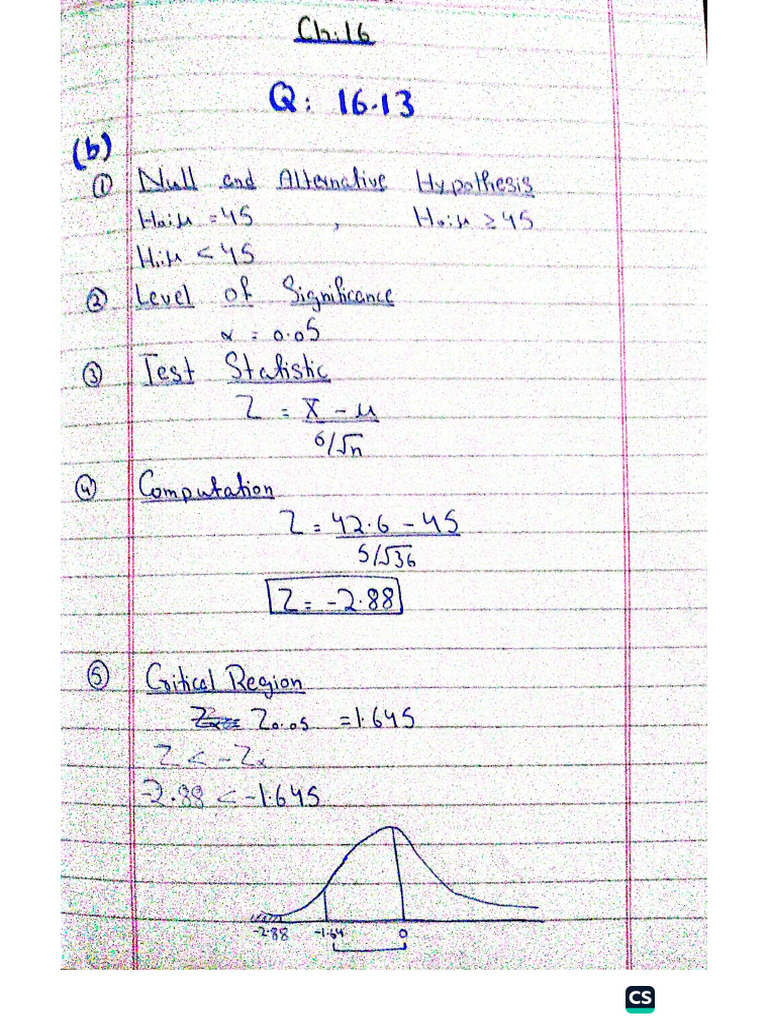 Ch:16
Q: 16.13
(b)
① Null and Alternative Hypothesis
H₀:μ = 45 , H₀:μ ≥ 45
H₁:μ < 45
② Level of Significance
α = 0.05
③ Test Statistic
Z = X̄ - μ
σ/√n
④ Computation
Z = 42.6 - 45
5/√36
Z = -2.88
⑤ Critical Region
Z₀.₀₅ = 1.645
Z < -Zα
-2.88 < -1.645
-2.88 -1.64 0
CS